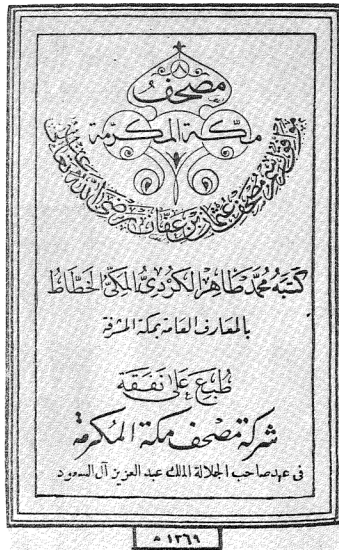 مصحف
مكة المكرمة
موافق لرسم مصحف عثمان بن عفان رضي الله تعالى عنه
كتبه محمد طاهر الكردي المكي الخطاط
بالمعارف العامة بمكة المشرفة
طبع على نفقة
شركة مصحف مكة المكرمة
في عهد صاحب الجلالة الملك عبد العزيز آل السعود
١٣٦٩ هـ